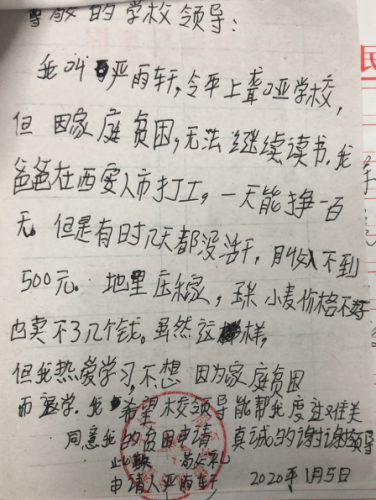 尊敬的学校领导:
我叫严雨轩,今年上聋哑学校,
但因家庭贫困,无法继续读书。我
爸爸在西安人市打工,一天能挣一百
元。但是有时几天都没活干,月收入不到
500元。地里庄稼,玉米小麦价格不好
也卖不了几个钱。虽然这样,
但我热爱学习,不想因为家庭贫困
而退学。我希望校领导能帮我度过难关
同意我的贫困申请 真诚的谢谢领导
此致 敬礼
申请人严雨轩 2020年1月5日
民